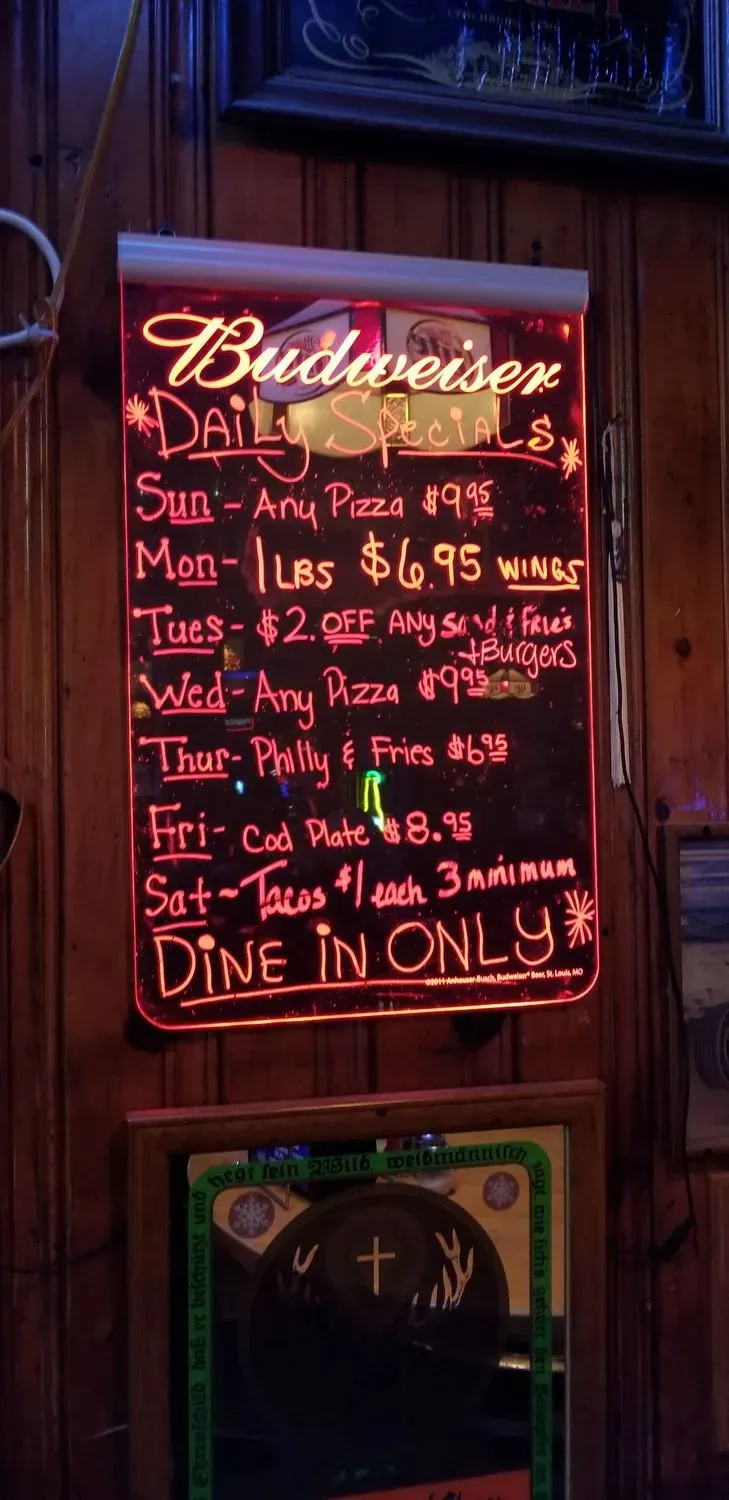 Budweiser
Daily Specials
Sun - Any Pizza $9.95
Mon - 1 LBS $6.95 WINGS
Tues - $2. OFF ANY Sand & Fries
+Burgers
Wed - Any Pizza $9.95
Thur - Philly & Fries $6.95
Fri - Cod Plate $8.95
Sat ~ Tacos $1 each 3 minimum
DINE IN ONLY
©2011 Anheuser-Busch, Budweiser® Beer, St. Louis, MO
Ehrenschild, daß er beschützt und hegt sein Wild, weidmännisch jagt wie sich's gehört, den